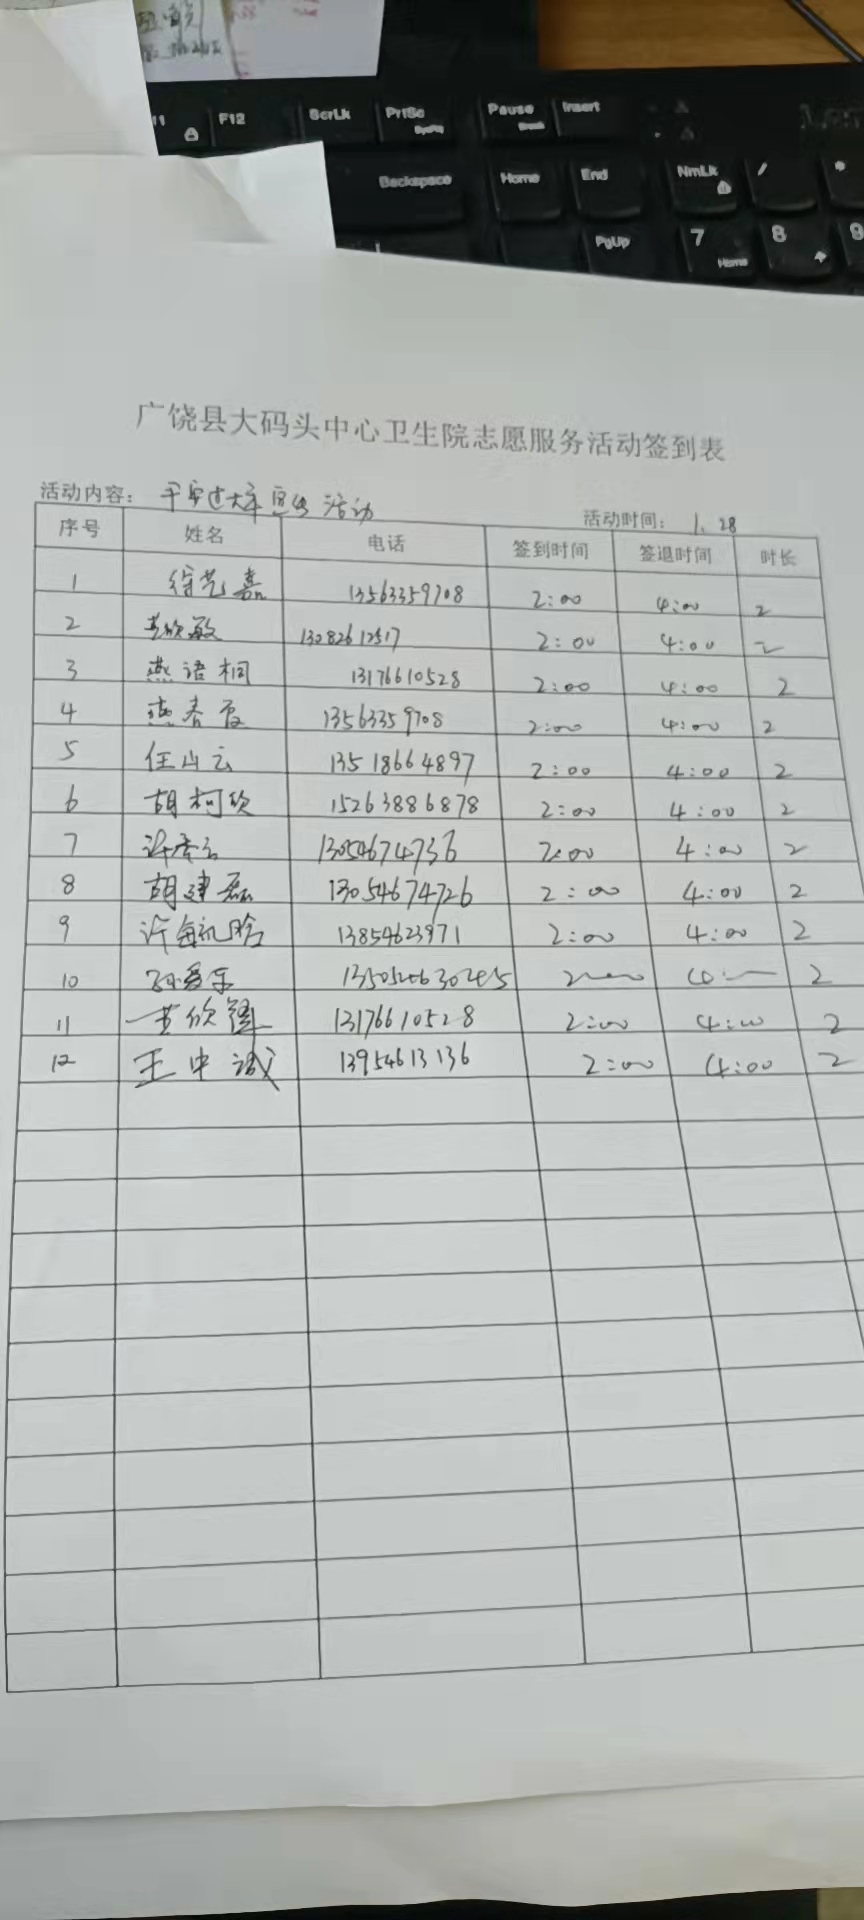 F12 ScrLk PrtSc SysRq Pause Break Insert
Backspace Home End NmLk /
PgUp 7 Home 8 9
广饶县大码头中心卫生院志愿服务活动签到表
活动内容： 平安过大年宣传活动 活动时间： 1.28
序号 姓名 电话 签到时间 签退时间 时长
1 徐艺嘉 13563359708 2:00 4:00 2
2 黄欣敏 13082612517 2:00 4:00 2
3 燕语桐 13176610528 2:00 4:00 2
4 燕春霞 13563359708 2:00 4:00 2
5 任山云 13518664897 2:00 4:00 2
6 胡柯欣 15263886878 2:00 4:00 2
7 许 13054674736 2:00 4:00 2
8 胡建磊 13054674726 2:00 4:00 2
9 许 13854623971 2:00 4:00 2
10 孙爱乐 2
11 黄欣 13176610528 2:00 4:00 2
12 王中诚 13954613136 2:00 4:00 2